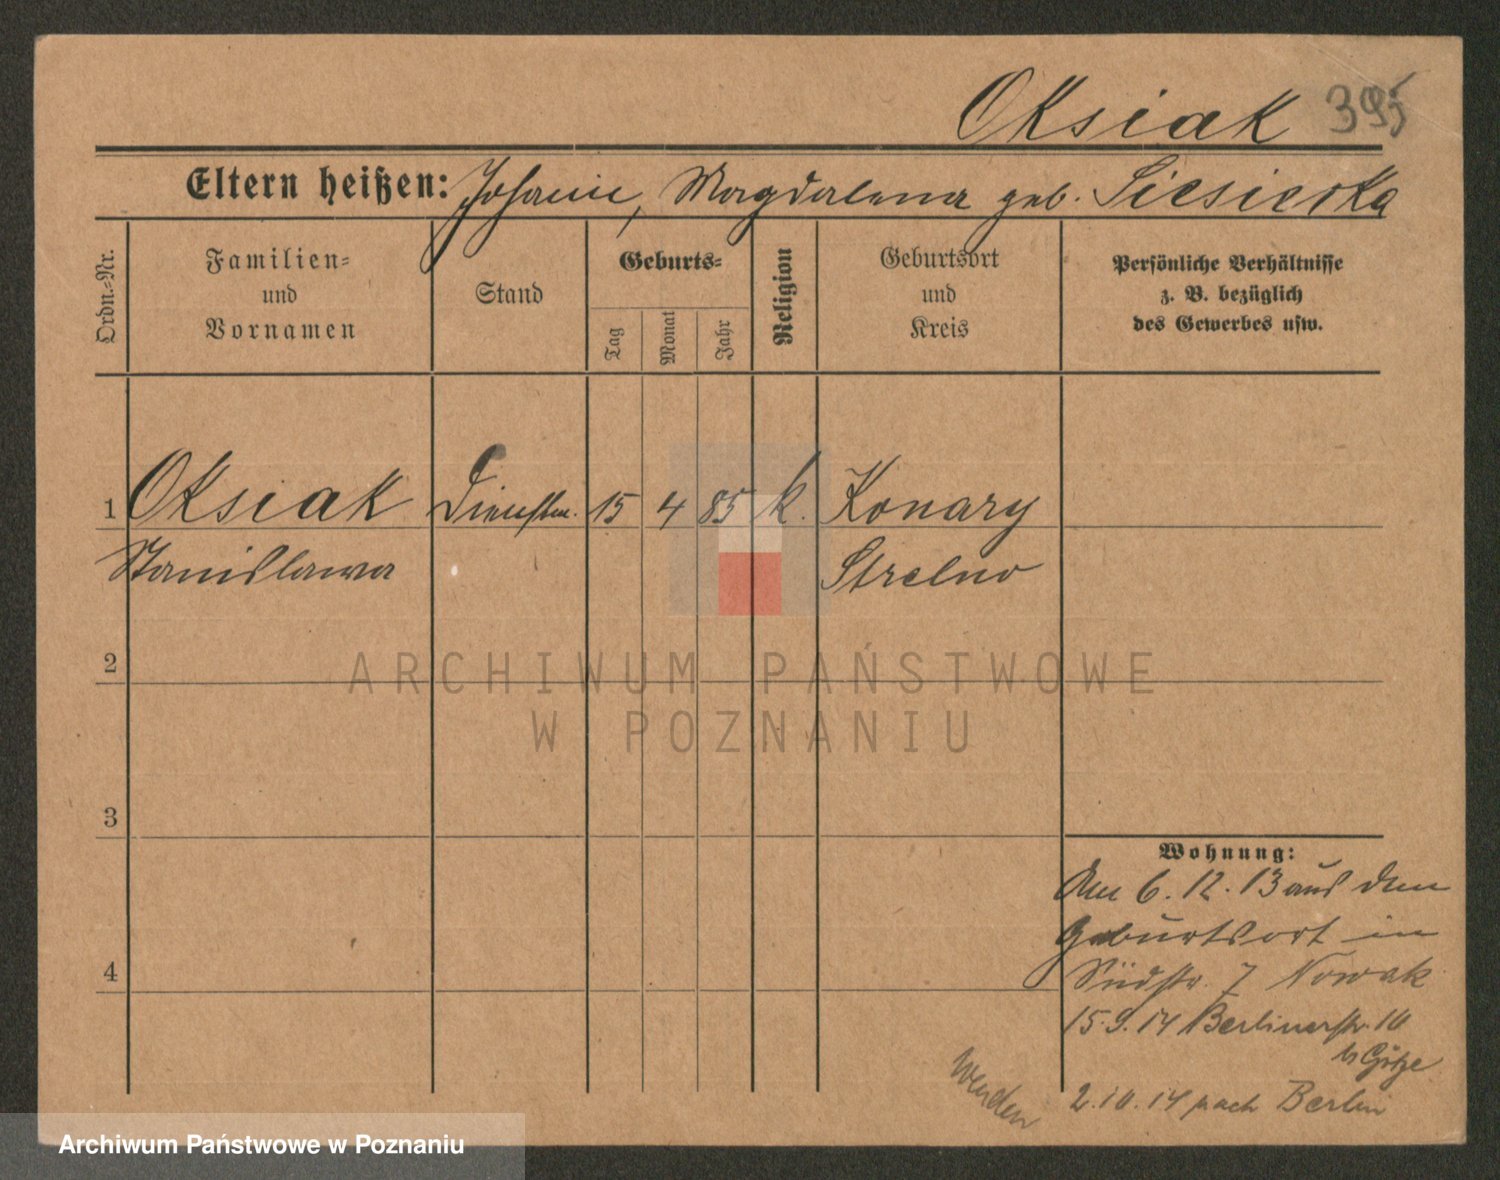 Oksiak 395
Eltern heißen: Johann, Magdalena geb. Siesierska
Ordn.=Nr.
Familien=
und
Vornamen
Stand
Geburts=
Tag
Monat
Jahr
Religion
Geburtsort
und
Kreis
Persönliche Verhältnisse
z. B. bezüglich
des Gewerbes usw.
1 Oksiak Dienstm. 15 4 85 k. Konary
Stanislawa Strelno
2
3
4
Wohnung:
Am 6.12.13 aus dem
Geburtsort in
Südstr. 7 Nowak
15.9.14 Berlinerstr. 10
b Götze
2.10.14 nach Berlin
Wenden
ARCHIWUM PAŃSTWOWE
W POZNANIU
Archiwum Państwowe w Poznaniu